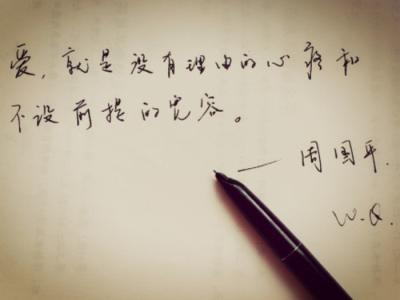 爱，就是没有理由的心疼和
不设前提的宽容。
——周国平.
W.Q.